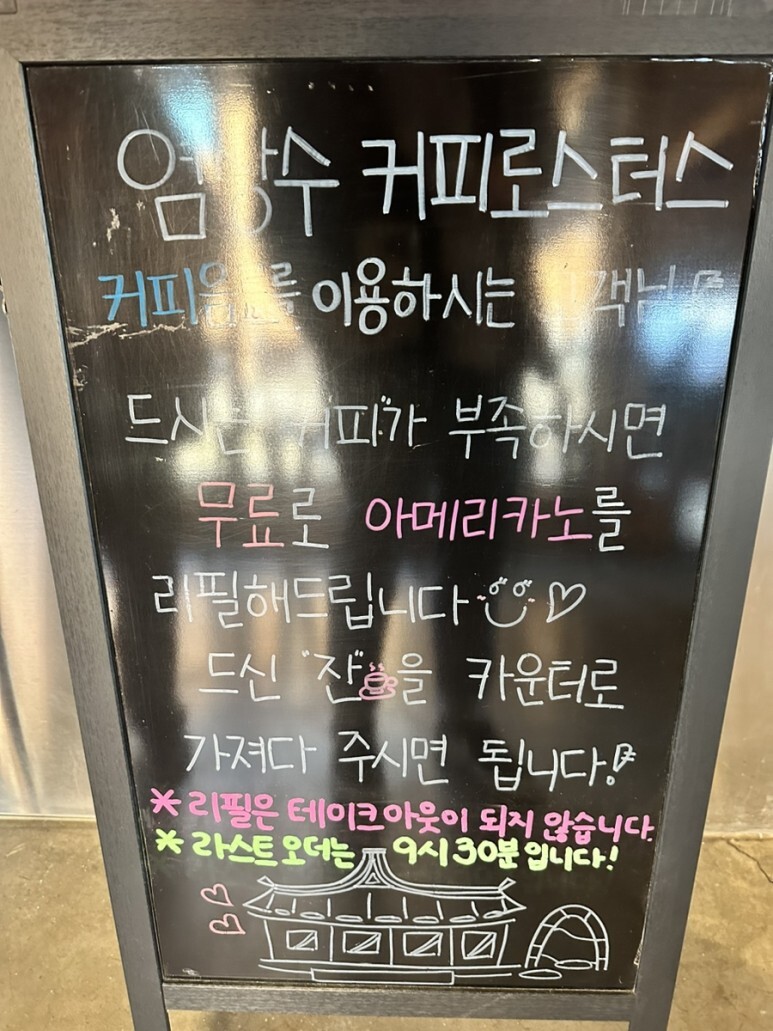 엄광수 커피로스터스
커피음료를 이용하시는 고객님
드시는 "커피"가 부족하시면
무료로 아메리카노를
리필해드립니다
드신 "잔"을 카운터로
가져다 주시면 됩니다!
* 리필은 테이크아웃이 되지 않습니다.
* 라스트오더는 9시 30분 입니다!